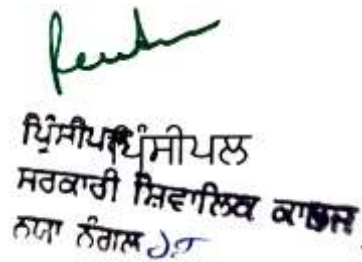 ਪ੍ਰਿੰਸੀਪਲ ਪ੍ਰਿੰਸੀਪਲ
ਸਰਕਾਰੀ ਸ਼ਿਵਾਲਿਕ ਕਾਲਜ
ਨਯਾ ਨੰਗਲ